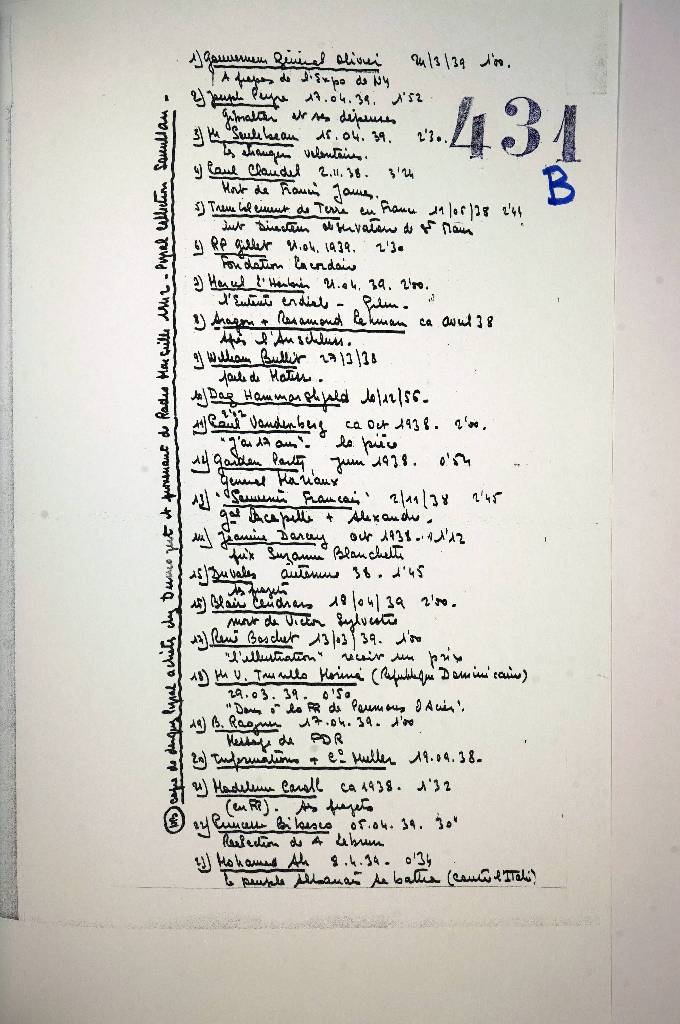 1) Gouverneur Général Olivier 24/3/39 1'00.
A propos de l'Expo de NY
2) Joseph Peyre 17.04.39. 1'52
Gibraltar et ses défenses
3) Mr 15.04.39. 2'30.
Les échanges volontaires.
4) Paul Claudel 2.11.38. 3'24
Mort de Francis Jammes.
5) Tremblement de Terre en France 11/05/38 2'44
Int Directeur observatoire de St Maur
6) RP Gillet 21.04.1939. 2'30
Fondation Lacordaire
7) Marcel L'Herbier 21.04.39. 2'00.
"l'Entente cordiale - Film."
8) Aragon + Rosamond Lehman ca avril 38
Après l'Anschluss.
9) William Bullit 27/3/38
parle de Matisse.
10) Dag Hammarskjold 10/12/56.
11) Paul Vandenberg ca Oct 1938. 2'00.
2'42
"J'ai 17 ans". la pièce
12) Garden Party juin 1938. 0'54
General Mariaux
13) "Souvenir Francais" 2/11/38 2'45
Gal Lacapelle + Alexandre.
14) Jeanine Darcey oct 1938. 1'12
prix Suzanne Blanchetti
15) Duvalès automne 38. 1'45
ses projets
16) Blaise Cendrars 18/04/39 2'00.
mort de Victor Sylvestre
17) René Baschet 13/03/39. 1'00
"l'illustration" recoit un prix
18) Mr V. Trujillo Molina (République Dominicaine)
29.03.39. 0'50
"Dons à la FR de Poumons d'Acier".
19) B. 17.04.39. 1'00
Message de FDR
20) Informations + Cie Muller 19.09.38.
21) Madeleine Caroll ca 1938. 1'32
(en FR). ses projets
22) Princesse Bibesco 05.04.39. 30"
Reelection de A Lebrun
23) Mohamed Ali 8.4.39. 0'34
le peuple Albanais se battra (contre l'Italie)
431
B
copie de disques achetés chez et provenant de Radio Marseille 1942 - Collection